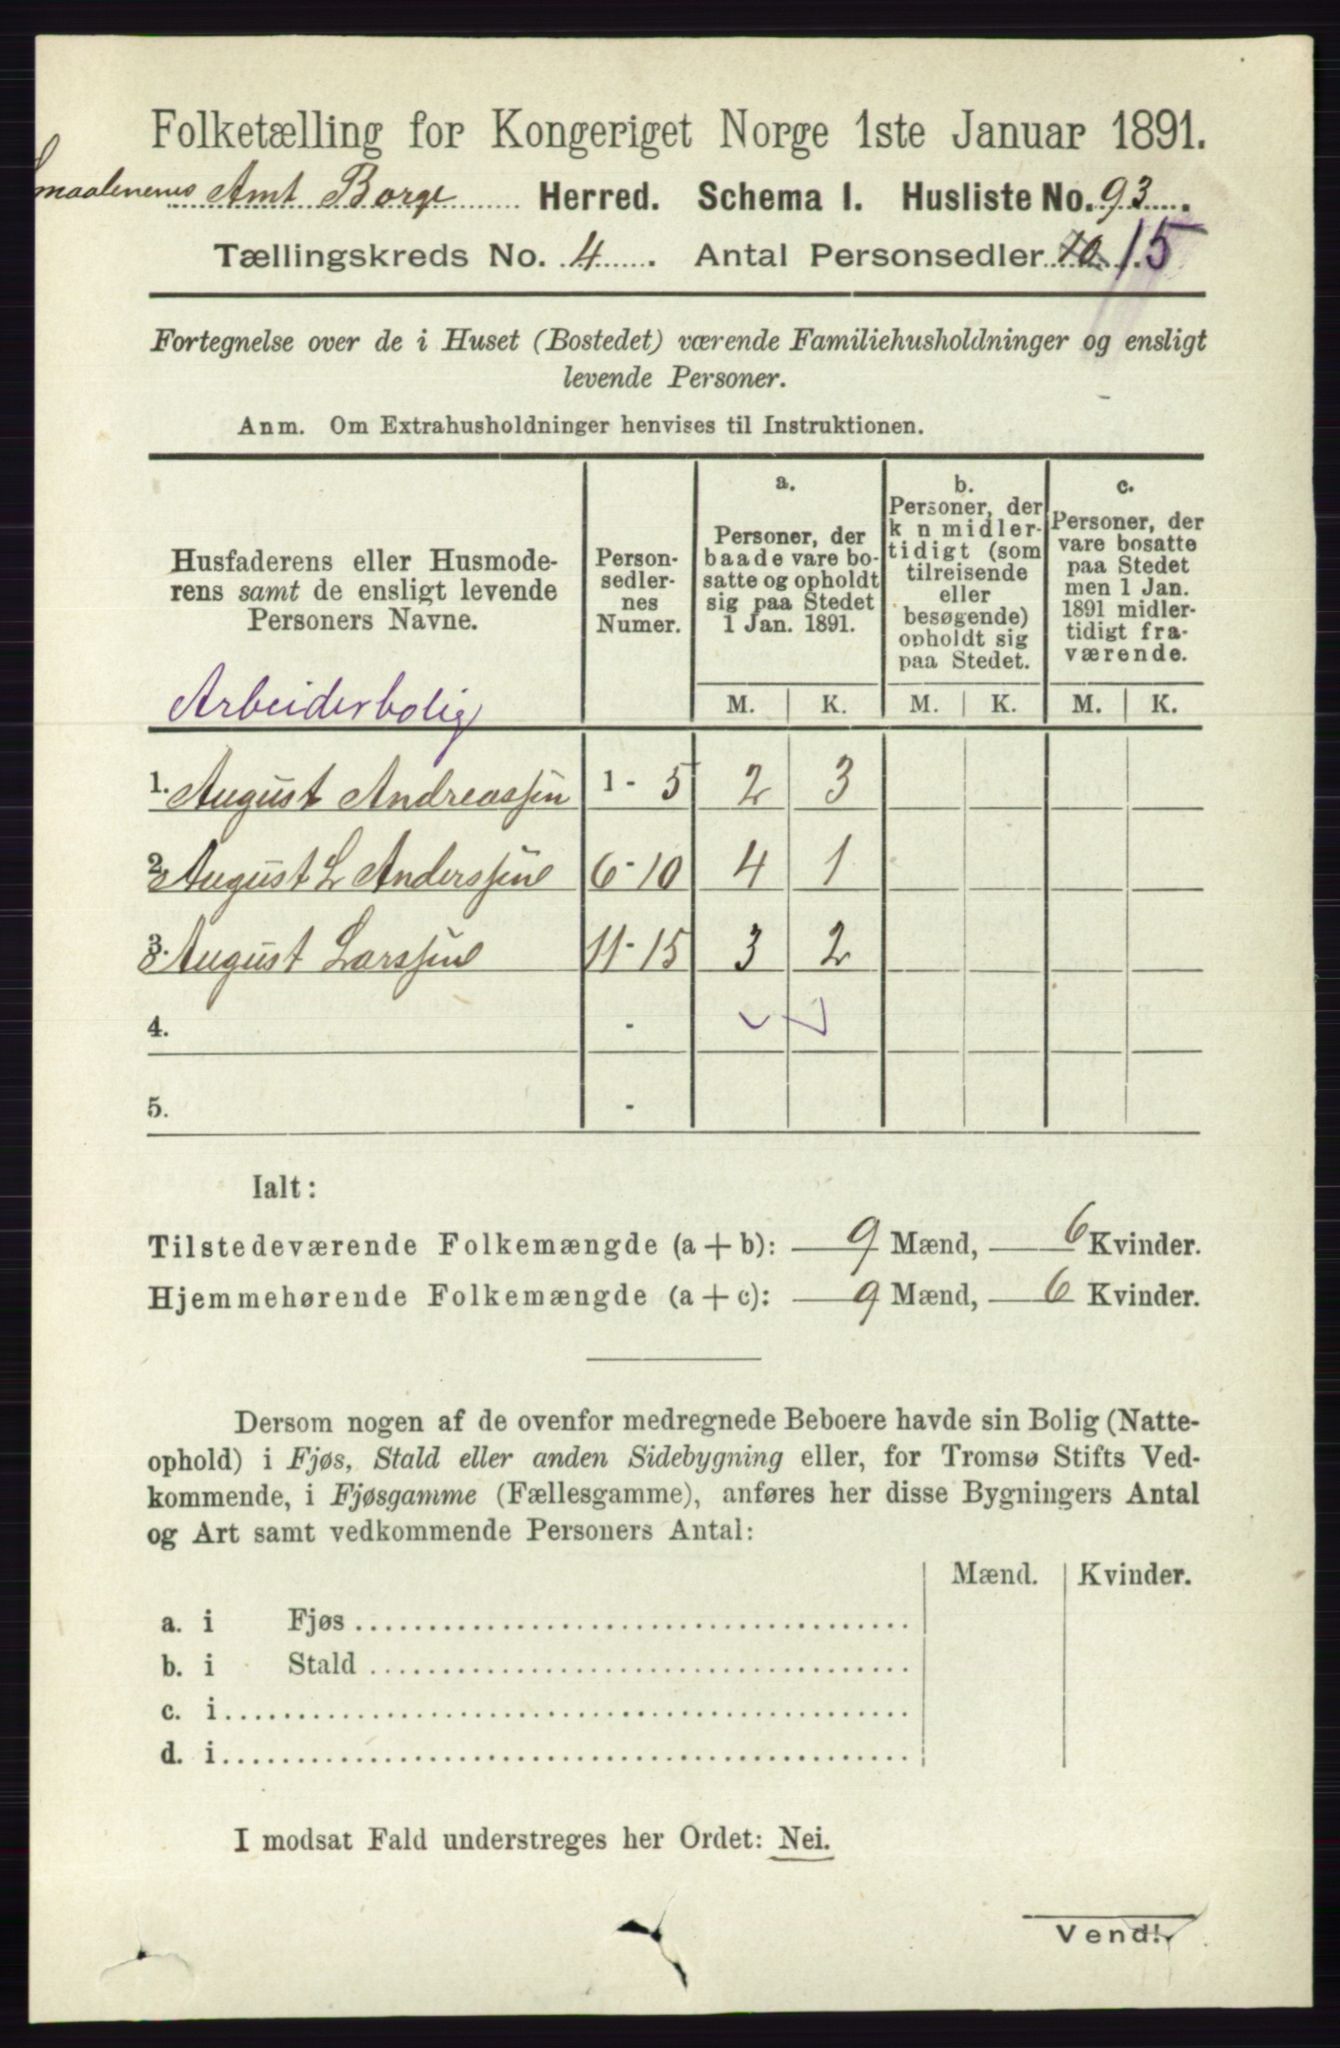 Folketælling for Kongeriget Norge 1ste Januar 1891.
Smaalenenes Amt Borge Herred. Schema I. Husliste No. 93.
Tællingskreds No. 4. Antal Personsedler 10 15
Fortegnelse over de i Huset (Bostedet) værende Familiehusholdninger og ensligt
levende Personer.
Anm. Om Extrahusholdninger henvises til Instruktionen.
Husfaderens eller Husmode-
rens samt de ensligt levende
Personers Navne.
Arbeiderbolig
Person-
sedler-
nes
Numer.
a.
Personer, der
baade vare bo-
satte og opholdt
sig paa Stedet
1 Jan. 1891.
b.
Personer, der
k n midler-
tidigt (som
tilreisende
eller
besøgende)
opholdt sig
paa Stedet.
c.
Personer, der
vare bosatte
paa Stedet
men 1 Jan.
1891 midler-
tidigt fra-
værende.
M. K. M. K. M. K.
1. August Andreassen 1 - 5 2 3
2. August L Anderssen 6 - 10 4 1
3. August Larssen 11 - 15 3 2
4. -
5. -
Ialt:
Tilstedeværende Folkemængde (a + b): 9 Mænd, 6 Kvinder.
Hjemmehørende Folkemængde (a + c): 9 Mænd, 6 Kvinder.
Dersom nogen af de ovenfor medregnede Beboere havde sin Bolig (Natte-
ophold) i Fjøs, Stald eller anden Sidebygning eller, for Tromsø Stifts Ved-
kommende, i Fjøsgamme (Fællesgamme), anføres her disse Bygningers Antal
og Art samt vedkommende Personers Antal:
Mænd. Kvinder.
a. i Fjøs
b. i Stald
c. i
d. i
I modsat Fald understreges her Ordet: Nei.
Vend!